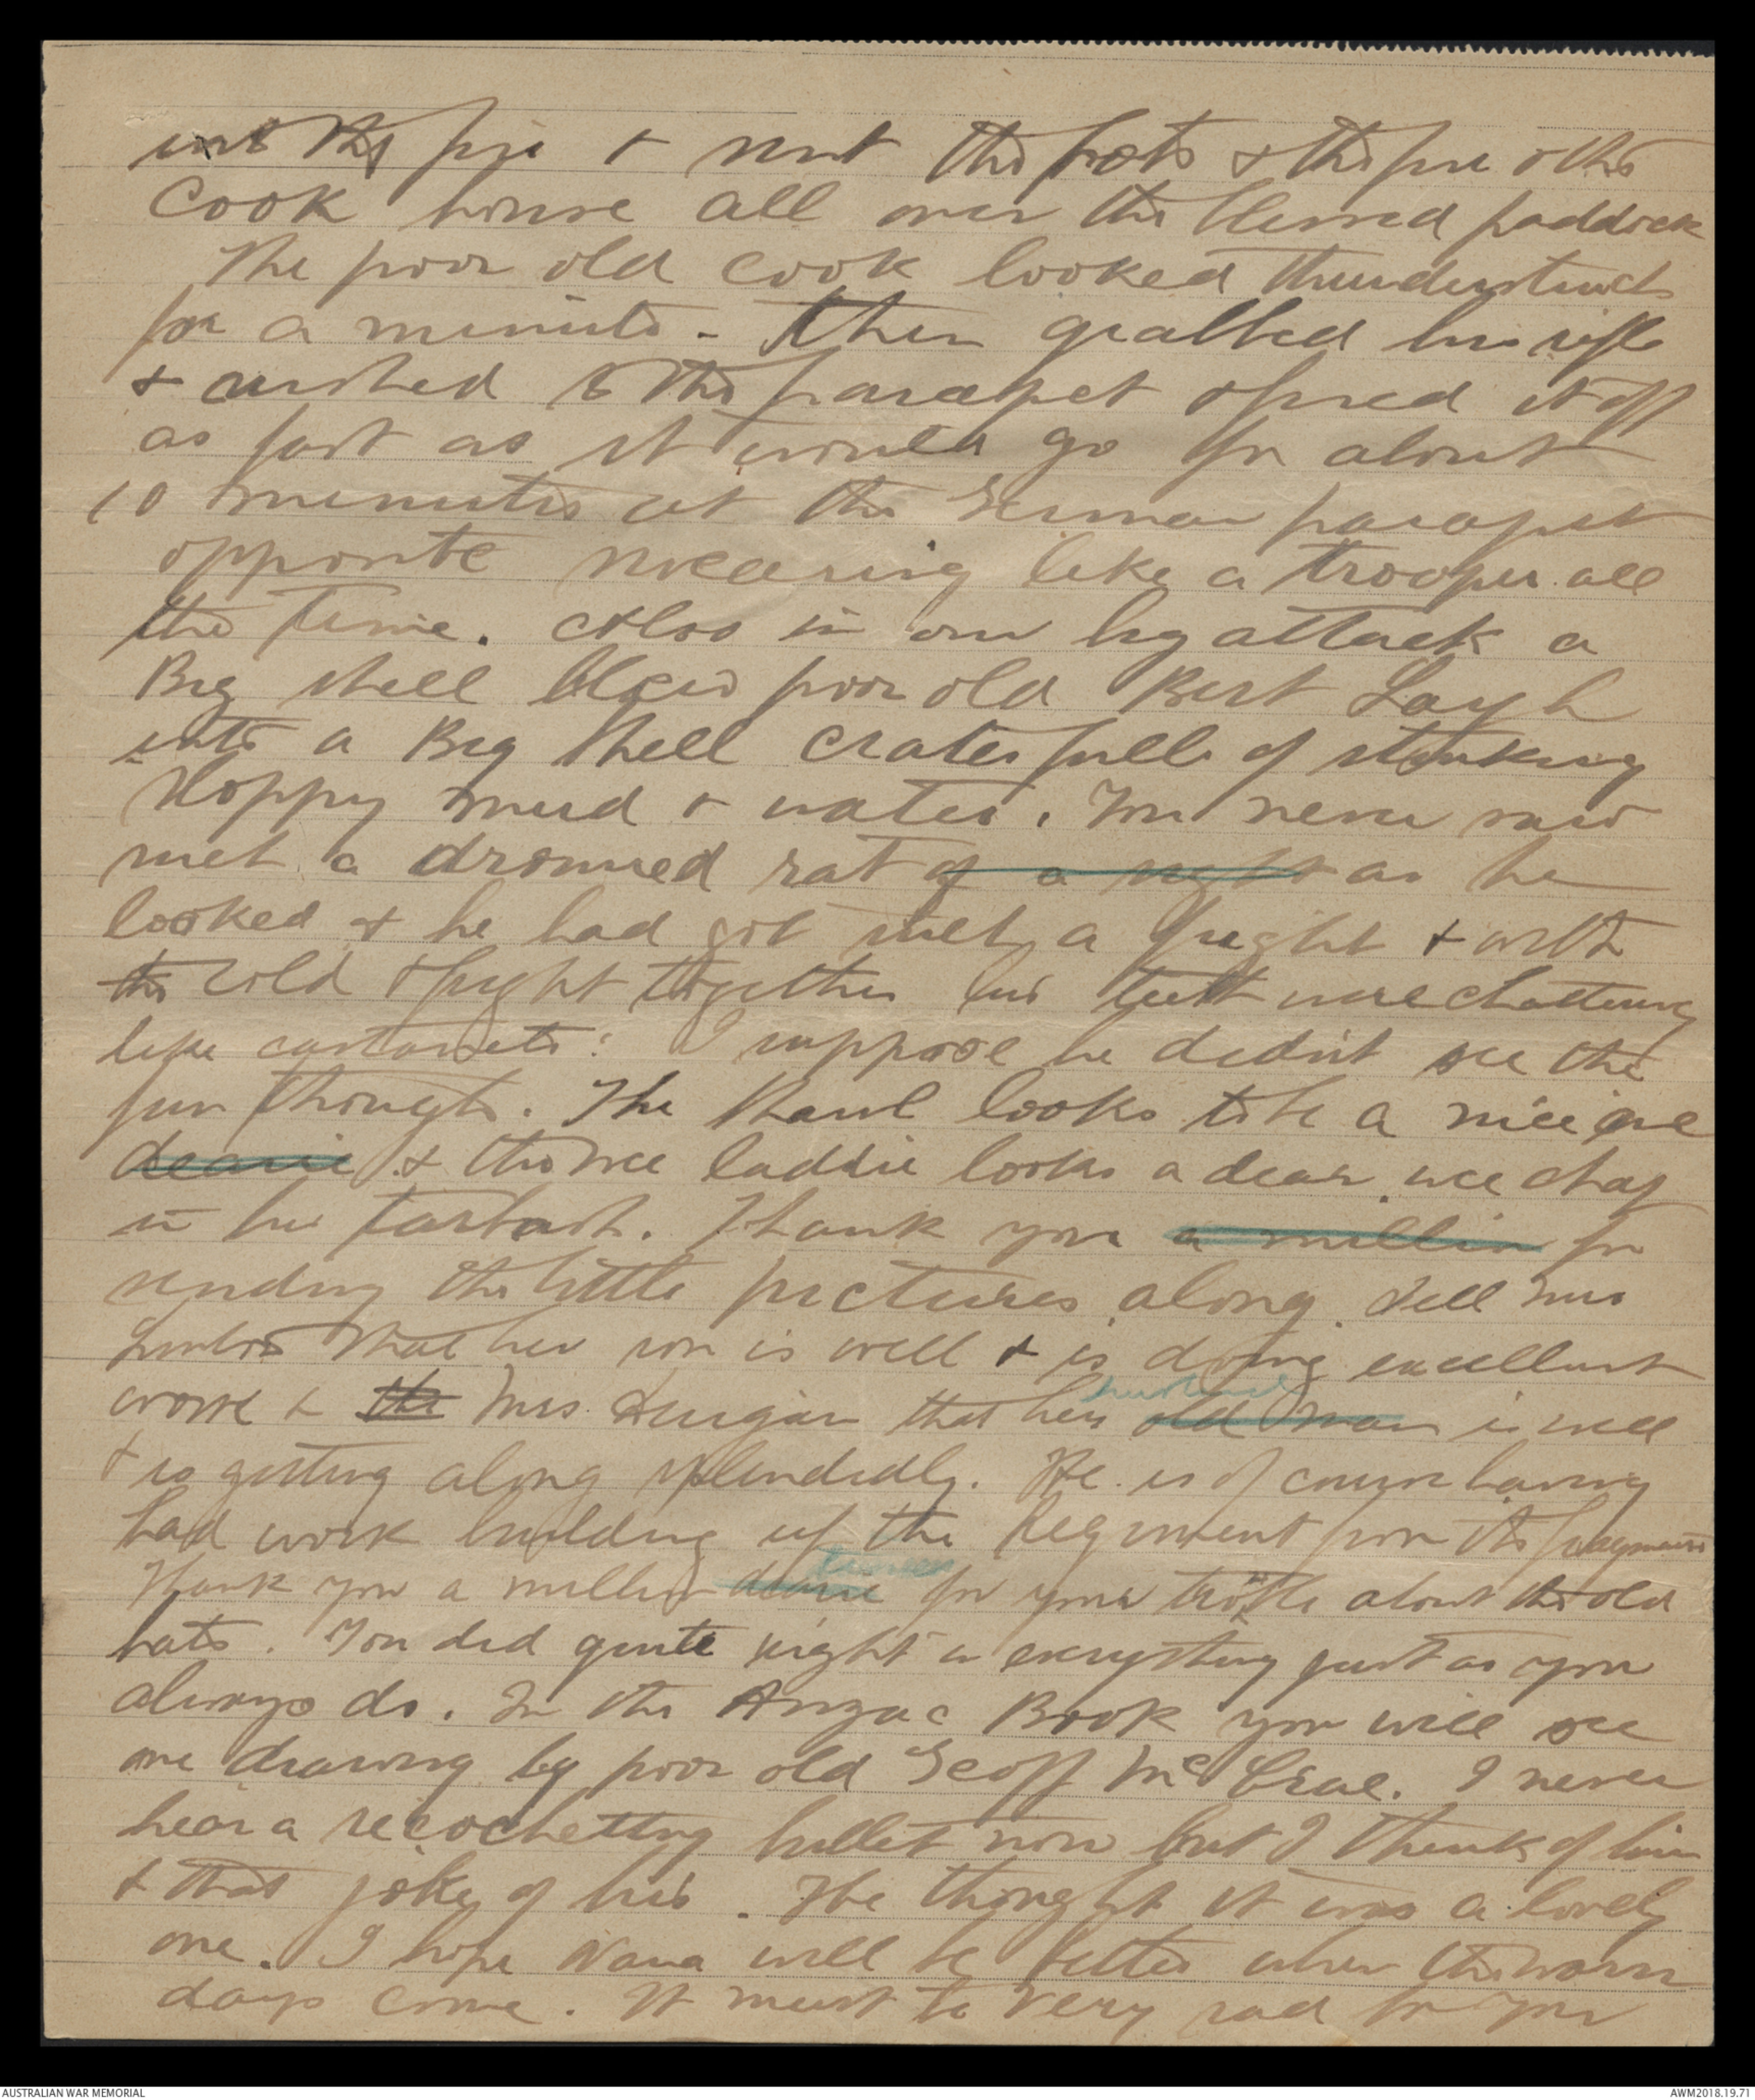 into the fire & sent the pots & the fire & the
cook house all over the blessed paddock
The poor old cook looked thunderstruck
for a minute - then grabbed his rifle
& rushed to the parapet & fired it off
as fast as it would go for about
10 minutes at the German parapet
opposite swearing like a trooper all
the time. Also in our big attack a
Big shell blew poor old Bert Layh
into a Big shell crater full of stinking
sloppy mud & water. You never saw
such a drowned rat of a sight as he
looked & he had got such a fright & with
the cold & fright together his teeth were chattering
like castanets: I suppose he didn't see the
fun though. The shawl looks to be a nice one
dearie & the wee laddie looks a dear wee chap
in his
Thank you a million for
sending the little pictures along. Tell Mrs
that her son is well & is doing excellent
work & the Mrs. Duigan that her husband old man is well
& is getting along splendidly. He is of course having
had work building up the Regiment from its fragments
Thank you a million dearie times for your trouble about the old
hats. You did quite right in everything just as you
always do. In the Anzac Book you will see
one drawing by poor old Geoff McCrae. I never
hear a ricochetting bullet now but I think of him
& that joke of his. He thought it was a lovely
one. I hope Nana will be better when the warm
days come. It must be very sad for you
AUSTRALIAN WAR MEMORIAL
AWM2018.19.71